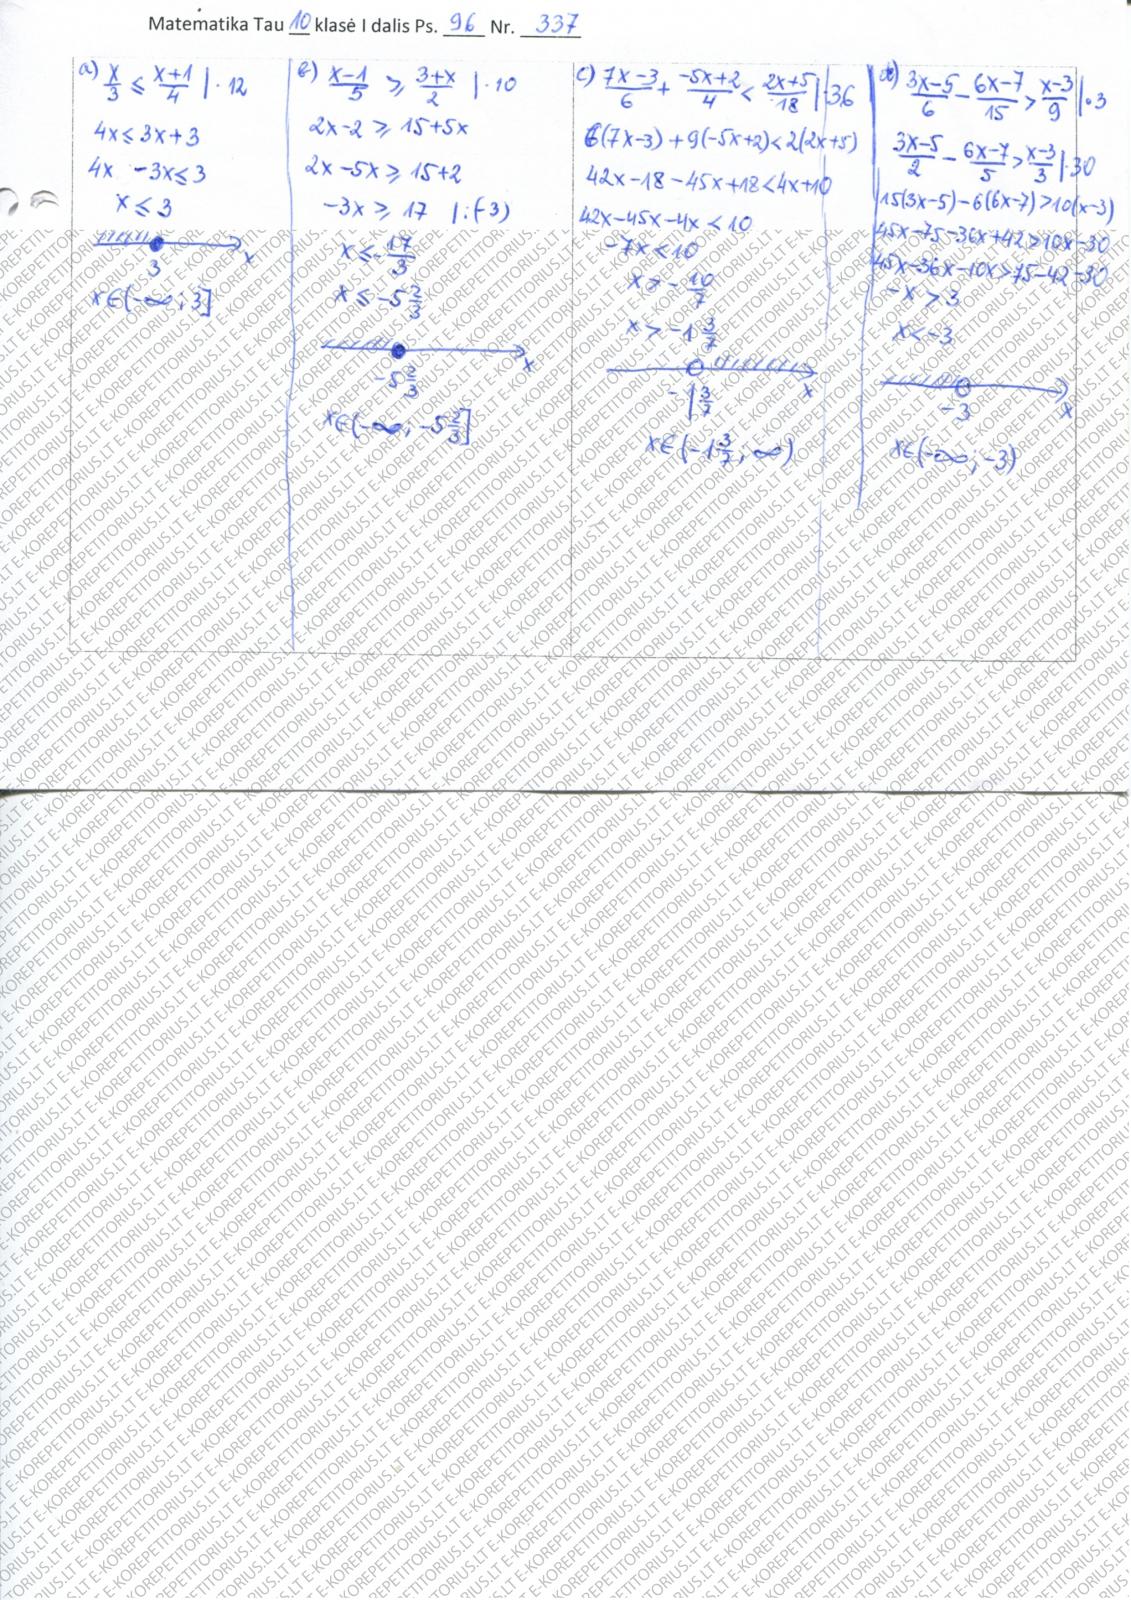 Matematika Tau 10 klasė I dalis Ps. 96 Nr. 337
a) x/3 ≤ (x+1)/4 | · 12
4x ≤ 3x + 3
4x - 3x ≤ 3
x ≤ 3
3 x
x ∈ (-∞ ; 3]
b) (x-1)/5 ≥ (3+x)/2 | · 10
2x - 2 ≥ 15 + 5x
2x - 5x ≥ 15 + 2
-3x ≥ 17 | : (-3)
x ≤ -17/3
x ≤ -5 2/3
-5 2/3 x
x ∈ (-∞ ; -5 2/3]
c) (7x-3)/6 + (-5x+2)/4 < (2x+5)/18 | · 36
6(7x-3) + 9(-5x+2) < 2(2x+5)
42x - 18 - 45x + 18 < 4x + 10
42x - 45x - 4x < 10
-7x < 10
x > -10/7
x > -1 3/7
-1 3/7 x
x ∈ (-1 3/7 ; ∞)
d) (3x-5)/6 - (6x-7)/15 > (x-3)/9 | · 3
(3x-5)/2 - (6x-7)/5 > (x-3)/3 | · 30
15(3x-5) - 6(6x-7) > 10(x-3)
45x - 75 - 36x + 42 > 10x - 30
45x - 36x - 10x > 75 - 42 - 30
-x > 3
x < -3
-3 x
x ∈ (-∞ ; -3)
E-KOREPETITORIUS.LT